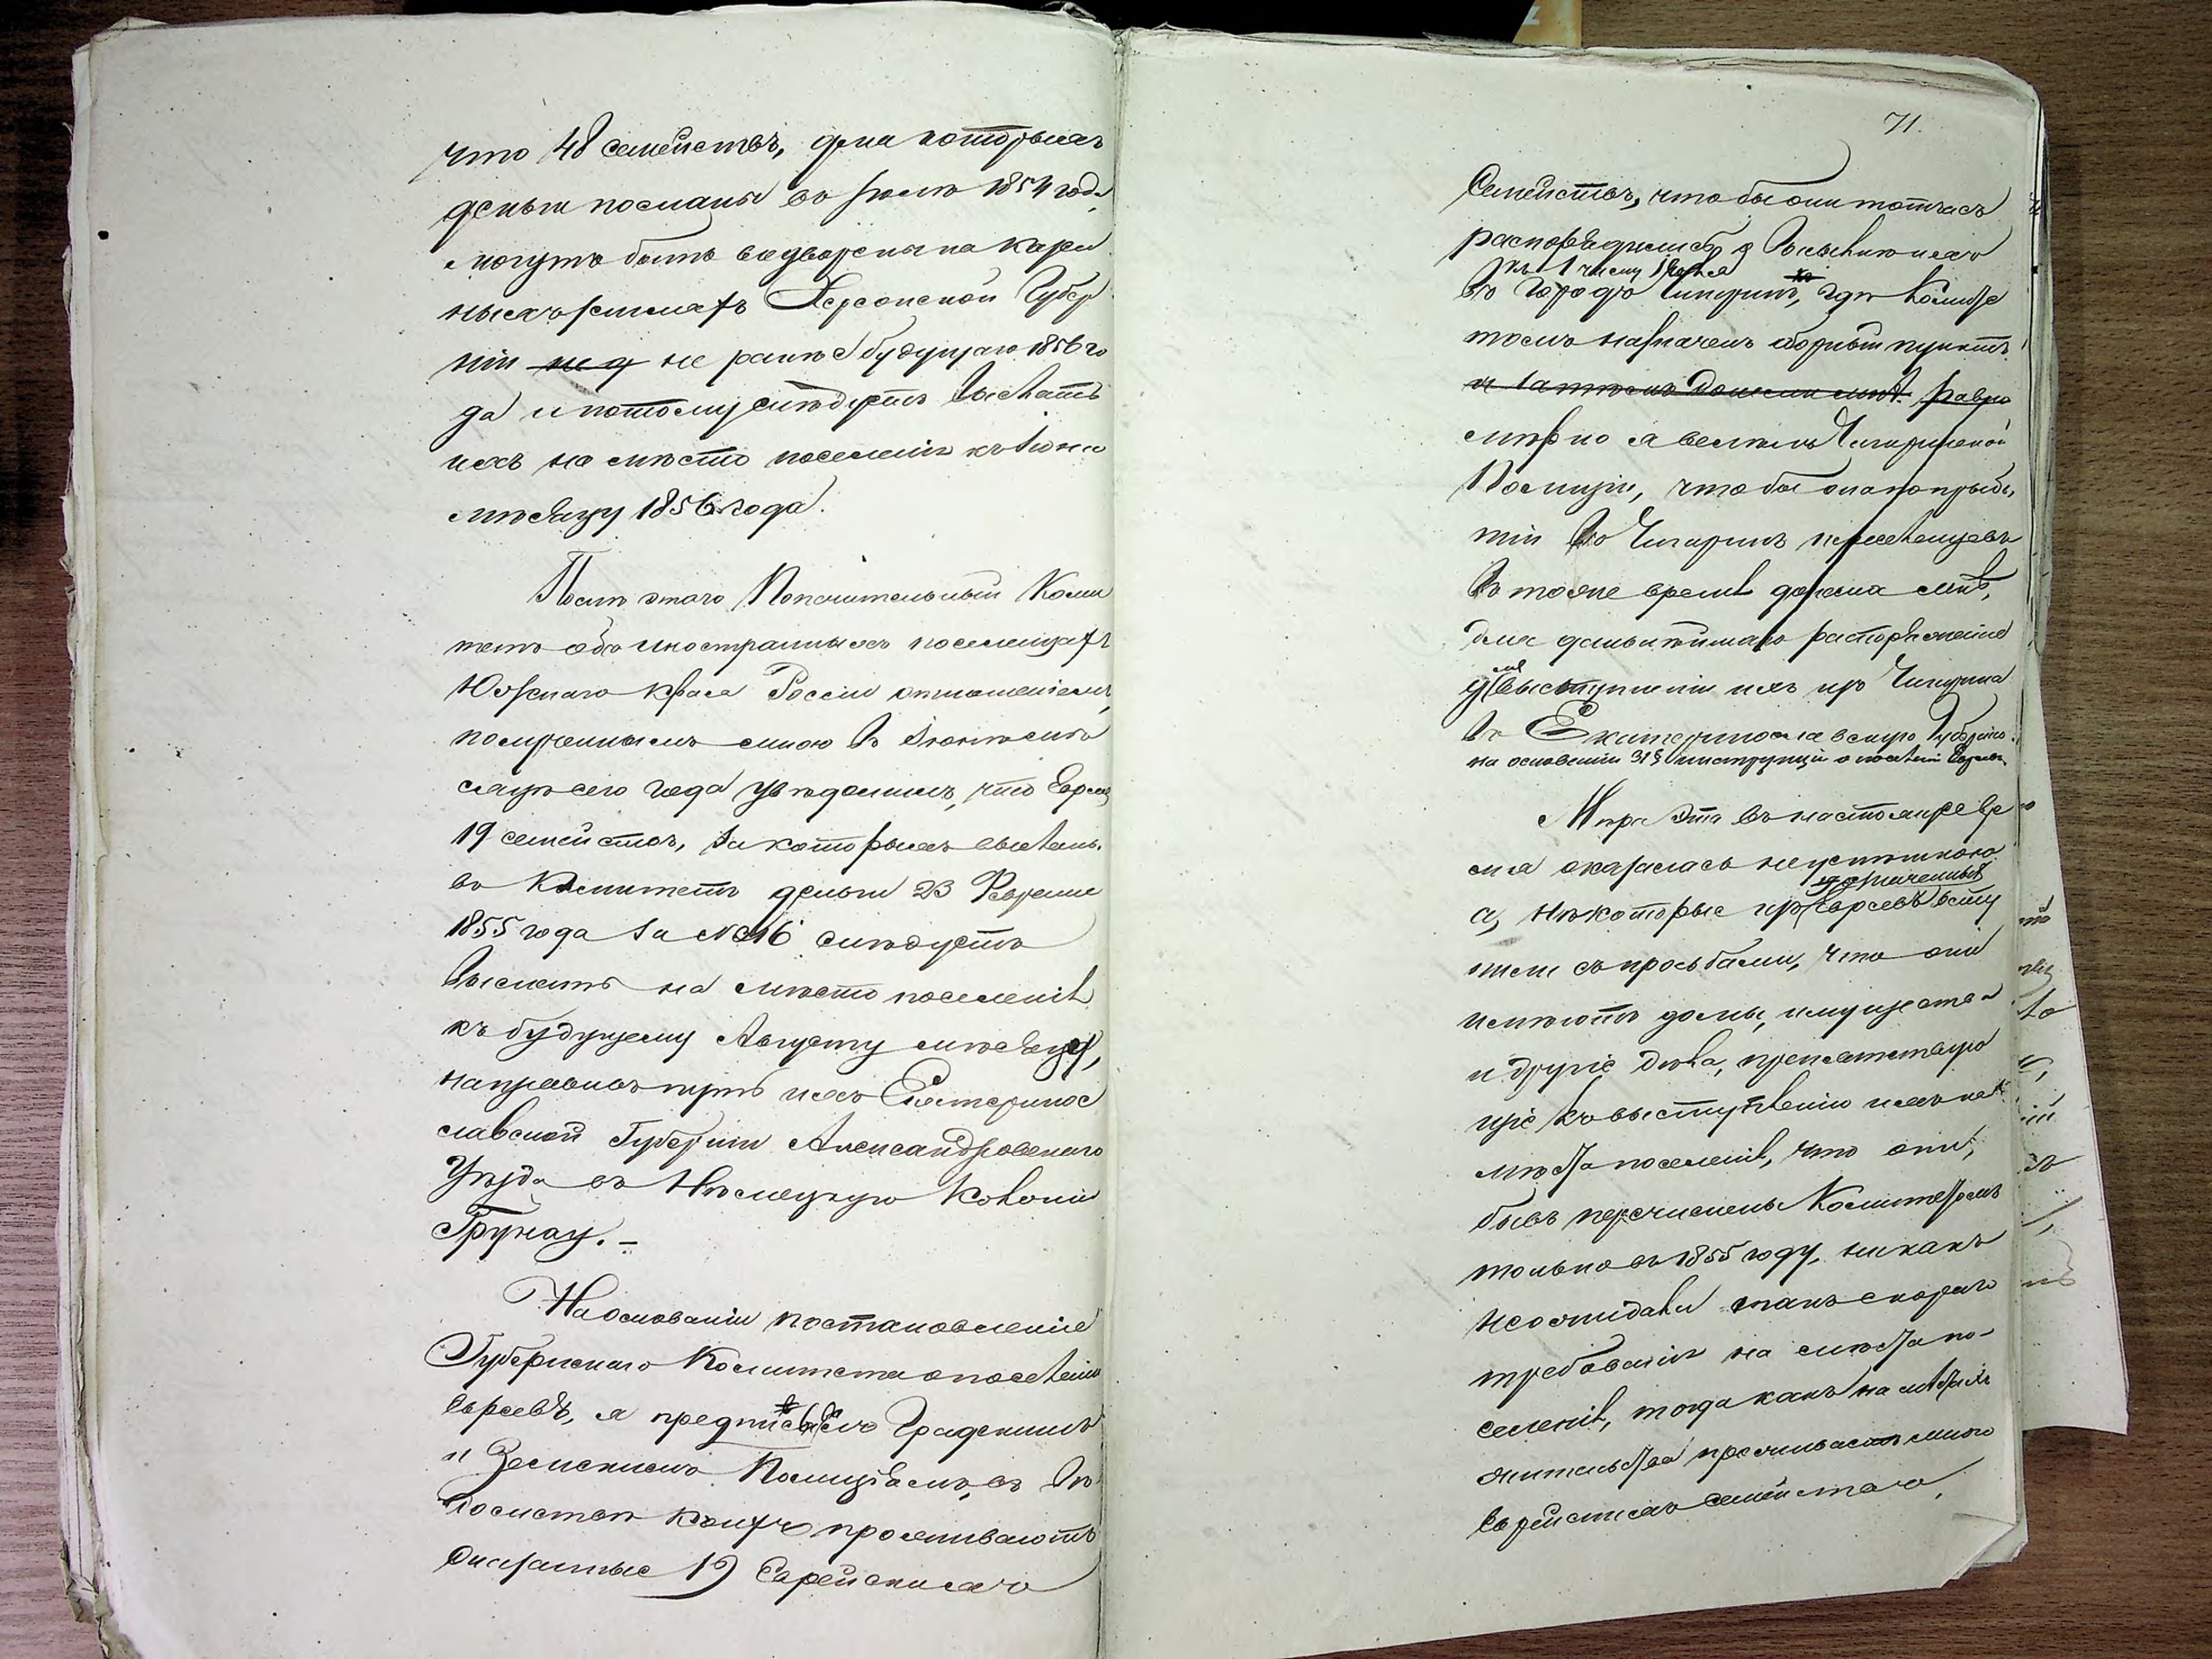 что 48 семействъ, для которыхъ
деньги посланы въ Іюлѣ 1854 года,
могутъ быть водворены на казен
ныхъ земляхъ Херсонской Губер
ніи не д не ранѣе будущаго 1856 го
да и потому слѣдуетъ выслать
ихъ на мѣсто поселенія къ Іюню
мѣсяцу 1856 года.
Послѣ этого Попечительный Коми
тетъ объ иностранныхъ поселенцахъ
Южнаго края Россіи отношеніемъ,
полученнымъ мною въ Іюнѣ мѣ
сяцѣ сего года увѣдомилъ, что Евреи
19 семействъ, за которыхъ высланы
въ Комитетъ деньги 23 Февраля
1855 года за № 416 слѣдуетъ
выслать на мѣсто поселенія
къ будущему Августу мѣсяцу,
направивъ путь ихъ Екатеринос
лавской Губерніи Александровскаго
Уѣзда въ Нѣмецкую Колонію
Грунау. –
На основаніи постановленія
Губернскаго Комитета о поселеніи
евреевъ, я предписалъ Градскимъ
и Земскимъ Полиціямъ, въ вѣ
домствѣ коихъ проживаютъ
означенные 19 Еврейскихъ
71.
Семействъ, что бы они тотчасъ
распорядились высылкою ихъ
къ 1 числу
въ городъ Чигиринъ, гдѣ Комите
томъ назначенъ сборный пунктъ
и затѣмъ донесли мнѣ. равно
мѣрно я велѣлъ Чигиринской
Полиціи, что бы она по прибы
тіи въ Чигиринъ переселенцевъ
въ тоже время донесла мнѣ,
для дальнѣйшаго распоряженія
о выступленіи ихъ изъ Чигирина
въ Екатеринославскую Губернію.
на основаніи 31 § инструкціи о поселеніи Евреевъ.
Мѣра эта въ настоящее вре
мя оказалась неуспѣшною
а, нѣкоторые изъ Евреевъ всту
означенныхъ
пили съ просьбами, что они
имѣютъ домы, имущества
и другіе дѣла, препятствую
щіе къ выступленію ихъ на
мѣста поселенія, что они,
бывъ перечислены Комитетомъ
только въ 1855 году, никакъ
не ожидали такъ скораго
требованія на мѣста по-
селенія, тогда какъ на мѣстахъ
жительства проживаетъ много
еврейскихъ семействъ,